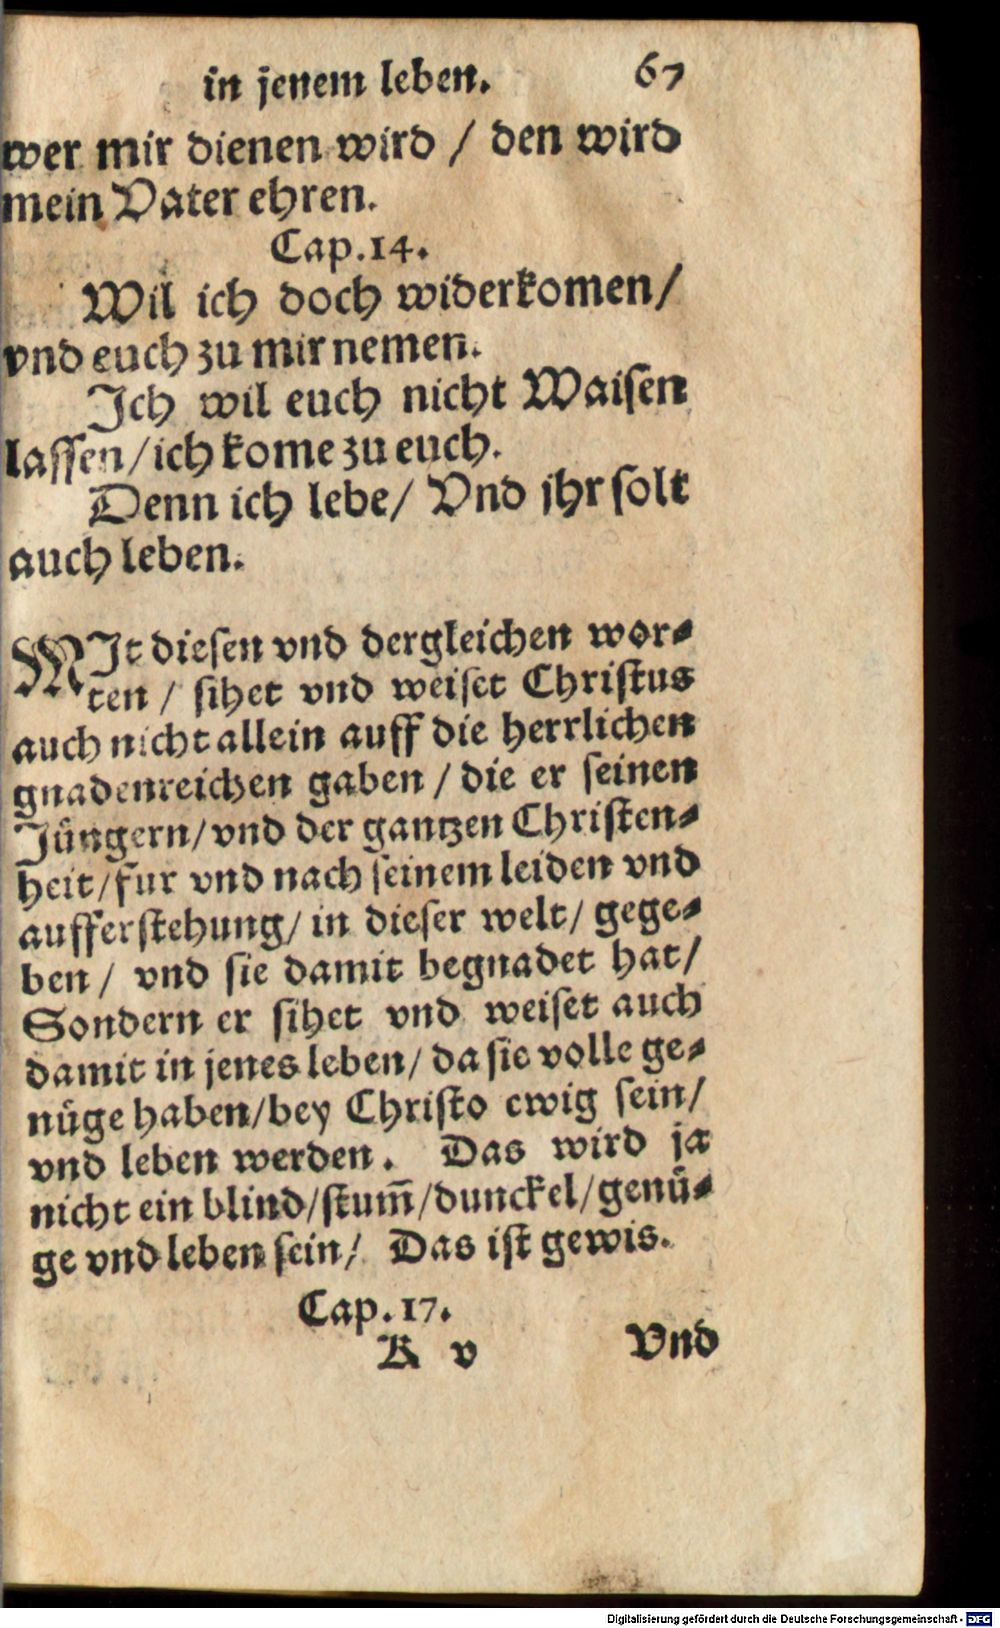 in jenem leben. 67
wer mir dienen wird / den wird
mein Vater ehren.
Cap. 14.
Wil ich doch widerkomen /
vnd euch zu mir nemen.
Ich wil euch nicht Waisen
lassen / ich kome zu euch.
Denn ich lebe / Vnd jhr solt
auch leben.
MIt diesen vnd dergleichen wor-
ten / sihet vnd weiset Christus
auch nicht allein auff die herrlichen
gnadenreichen gaben / die er seinen
Jüngern / vnd der gantzen Christen-
heit / fur vnd nach seinem leiden vnd
aufferstehung / in dieser welt / gege-
ben / vnd sie damit begnadet hat /
Sondern er sihet vnd weiset auch
damit in jenes leben / da sie volle ge-
nüge haben / bey Christo ewig sein /
vnd leben werden. Das wird ja
nicht ein blind / stum̄ / dunckel / genü-
ge vnd leben sein / Das ist gewis.
Cap. 17.
K v Vnd
Digitalisierung gefördert durch die Deutsche Forschungsgemeinschaft - DFG